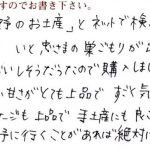 すのでお書き下さい。
野のお土産」とネットで検
いと思さまの巣ごもりが
いしそうだったので購入しまし
い甘さがとても上品で すぐ気
たちも上品で 手土産にも良
野に行くことがあれば絶対に